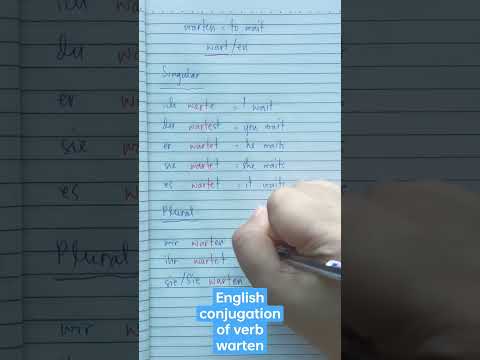 warten = to wait
wart/en
Singular
ich warte = I wait
du wartest = you wait
er wartet = he waits
sie wartet = she waits
es wartet = it waits
Plural
wir warten
ihr wartet
sie/Sie warten
English
conjugation
of verb
warten